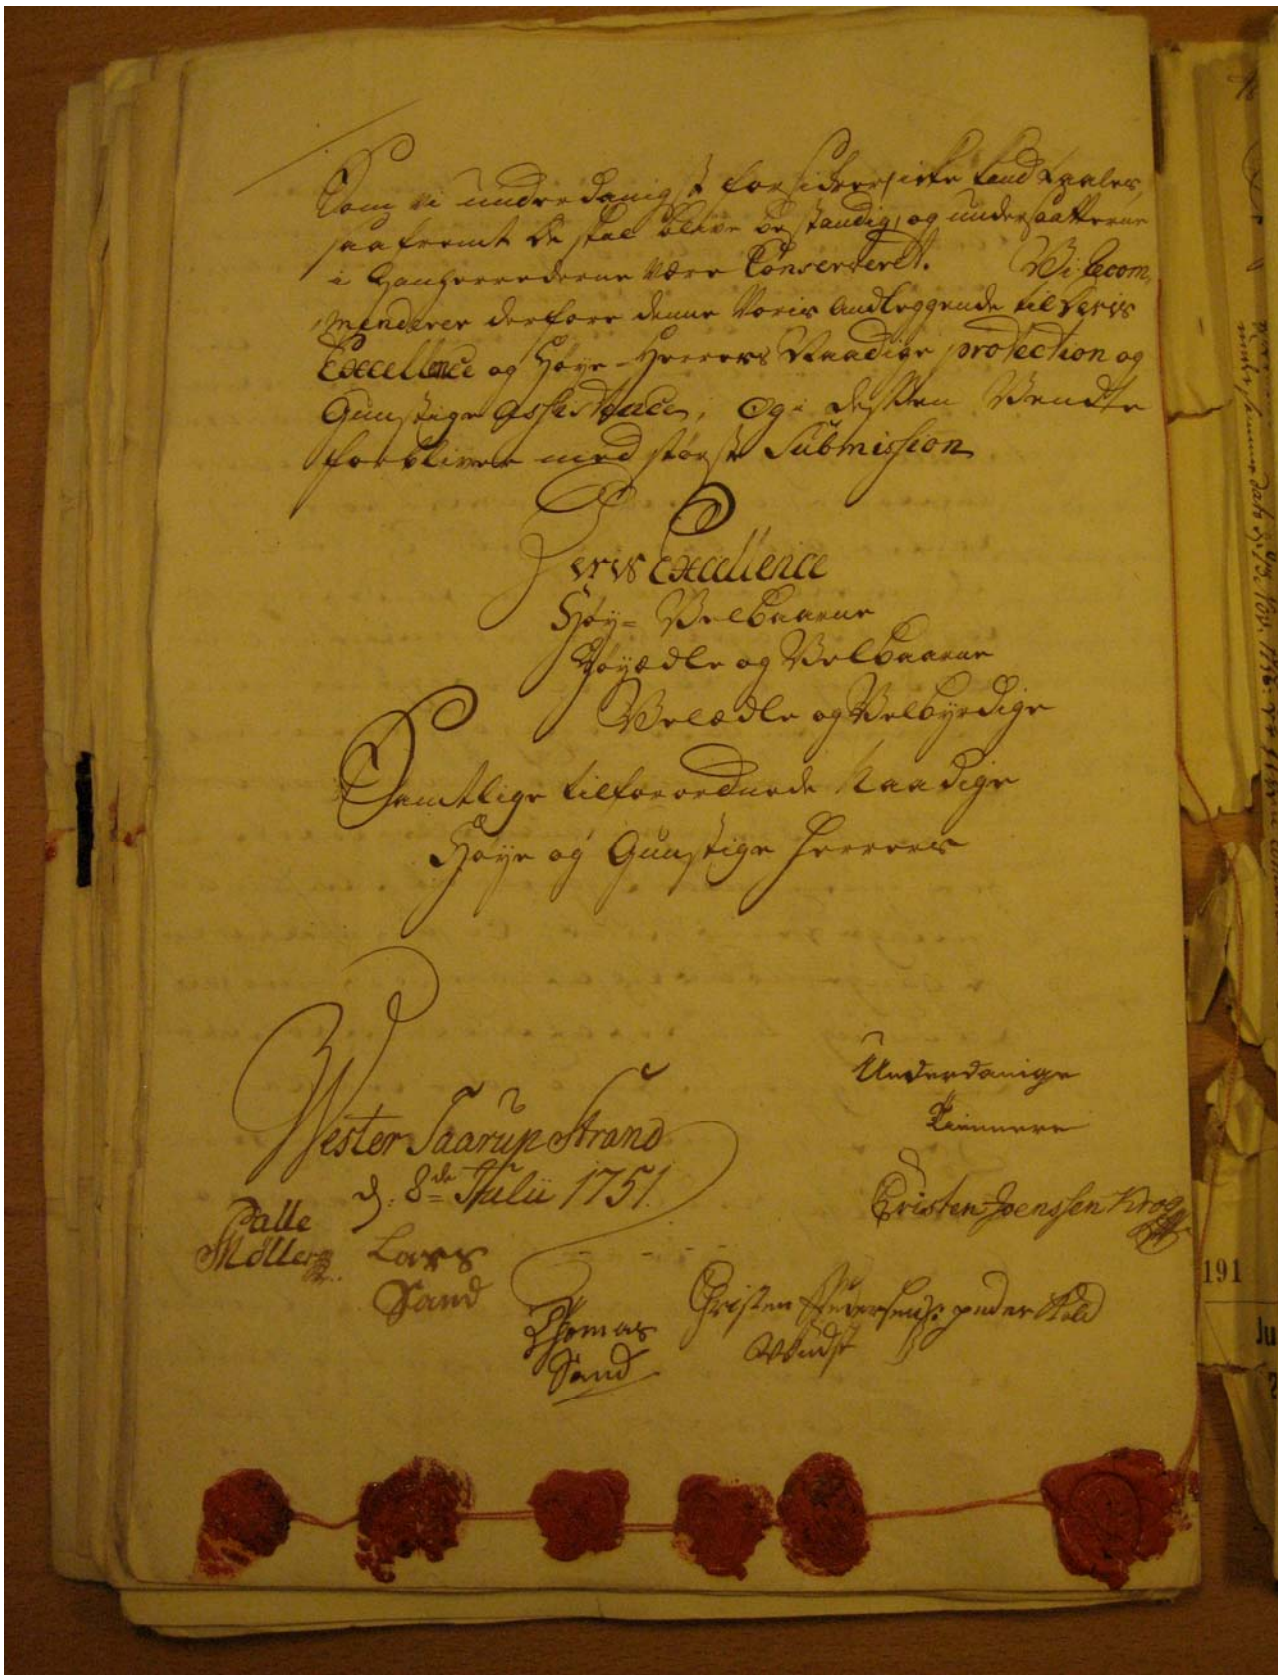 Som vi underdanigst forsikrer icke kand taales
saafremt de skal blive bestandig, og undersaatterne
i Hanherrederne være Conserveret. Vi Recom,
menderer derfore denne Voris Andleggende til Deris
Excellence og Høye-Herrers Naadige protection og
Gunstige assistence, Og i dessen Vendte
forbliver med største Submission
Deris Excellence
Høy= Velbaarne
Høyædle og Velbaarne
Velædle og Velbyrdige
Samtlige tilforordnede Naadige
Høye og Gunstige Herrers
Underdanige
Tiennere
Wester Taarup Strand
d: 8de Julii 1751.
Christen Joenssen Krog
Palle
Møller
Lars
Sand
Thomas
Sand
Christen Pedersen
191
Ju
2